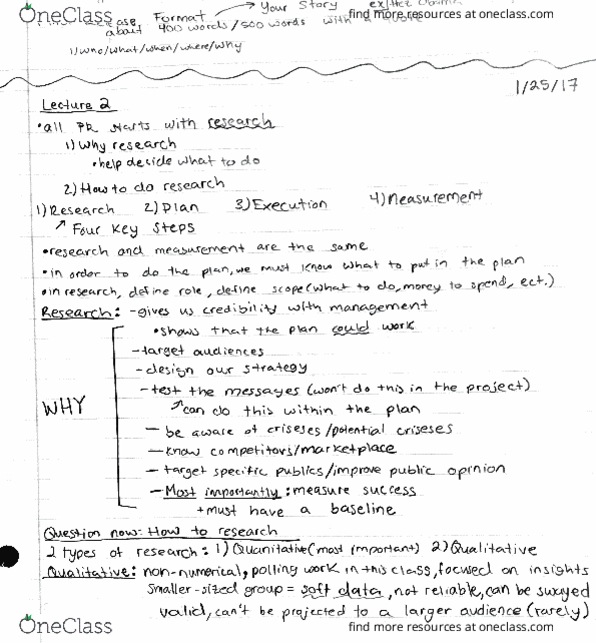 OneClass
Your Story
find more resources at oneclass.com
Format
about 400 words/500 words with a
1) who/what/when/where/why
1/25/17
Lecture 2
•all PR starts with research
1) Why research
•help decide what to do
2) How to do research
1) Research 2) Plan 3) Execution 4) Measurement
Four Key Steps
•research and measurement are the same
•in order to do the plan, we must know what to put in the plan
•in research, define role, define scope (what to do, money to spend, ect.)
Research: -gives us credibility with management
•shows that the plan could work
-target audiences
-design our strategy
-test the messages (won't do this in the project)
can do this within the plan
WHY
- be aware of criseses/potential criseses
-know competitors/marketplace
- target specific publics/improve public opinion
-Most importantly: measure success
+must have a baseline
Question now: How to research
2 types of research: 1) Quanitative (most important) 2) Qualitative
Qualitative: non-numerical, polling work in this class, focused on insights
Smaller-sized group = soft data, not reliable, can be swayed
valid, can't be projected to a larger audience (rarely)
OneClass
find more resources at oneclass.com